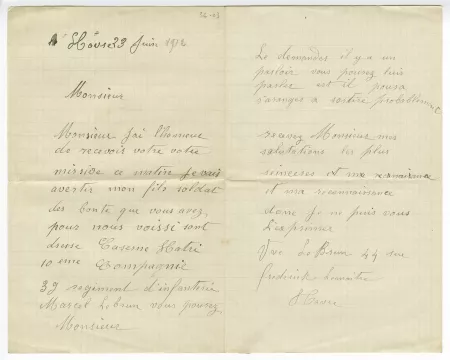 56-43
Havre 23 Juin 1916
Monsieur
Monsieur J'ai l'honneur
de recevoir votre votre
missive ce matin je vais
avertir mon fils soldat
des bonte que vous avez
pour nous voissi sont
dresse Caserne Hatri
10 eme Compagnie
39 regiment d'infanterie
Marcel Lebrun vous pouvez
Monsieur
Le demander il y a un
parloir vous pouvez lui
parler et il poura
s'aranger a sortire probablement
Monsieur mes
salutations les plus
sinceres et ma
et ma reconnaissance
dont je ne puis vous
L'exprimer
Vve Le Brun 44 rue
frederick Lemaitre
Havre